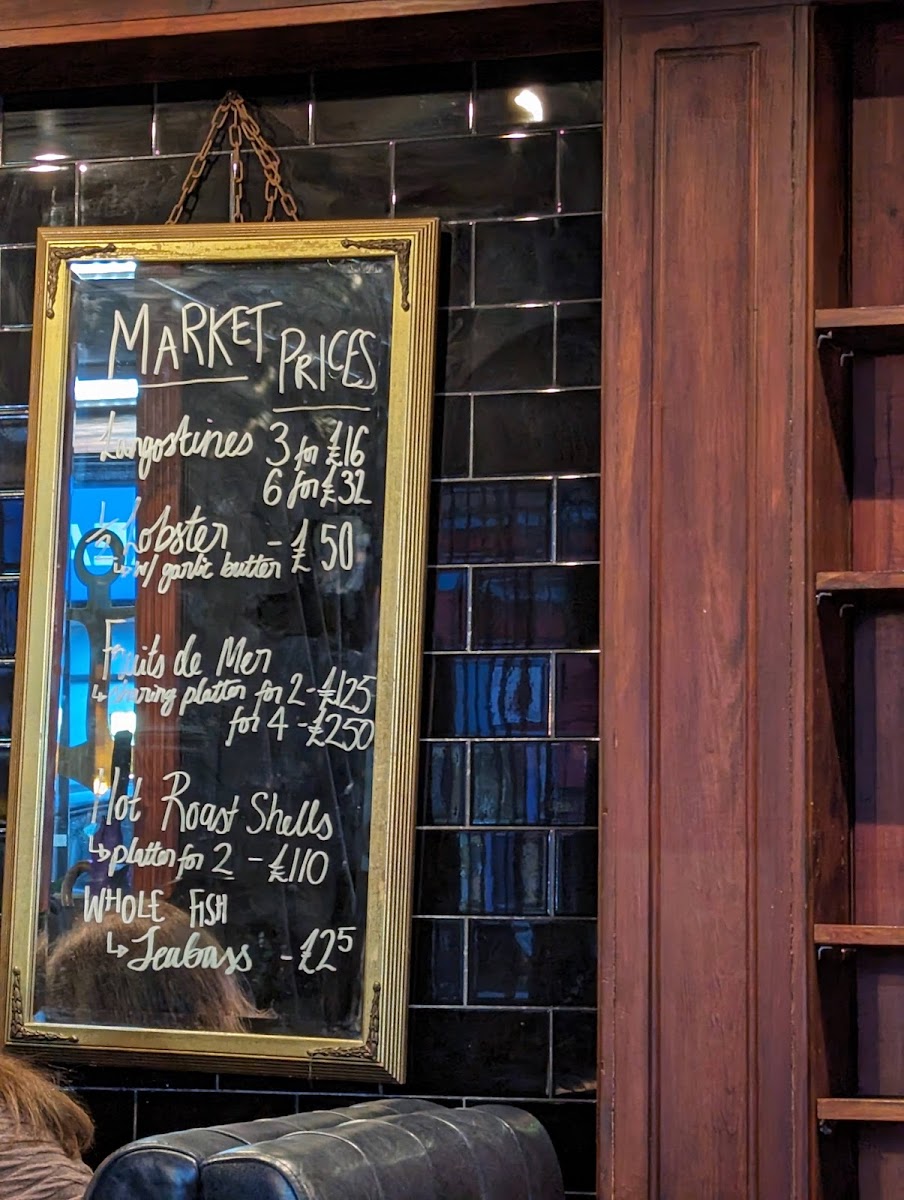 MARKET PRICES
Langostines 3 for £16
6 for £32
½ Lobster - £50
↳ w/ garlic butter
Fruits de Mer
↳ sharing platter for 2 - £125
for 4 - £250
Hot Roast Shells
↳ platter for 2 - £110
WHOLE FISH
↳ Seabass - £25